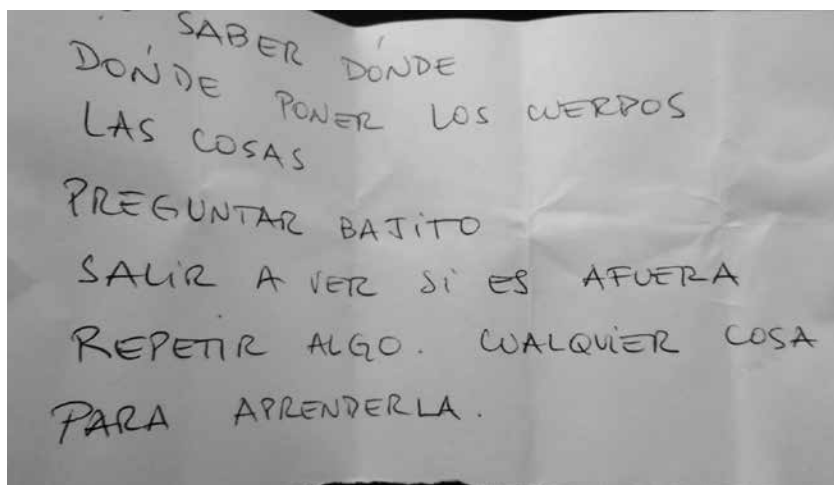 SABER DÓNDE
DÓNDE PONER LOS CUERPOS
LAS COSAS
PREGUNTAR BAJiTO
SALiR A VER Si ES AFUERA
REPETIR ALGO. CUALQUiER COSA
PARA APRENDERLA.